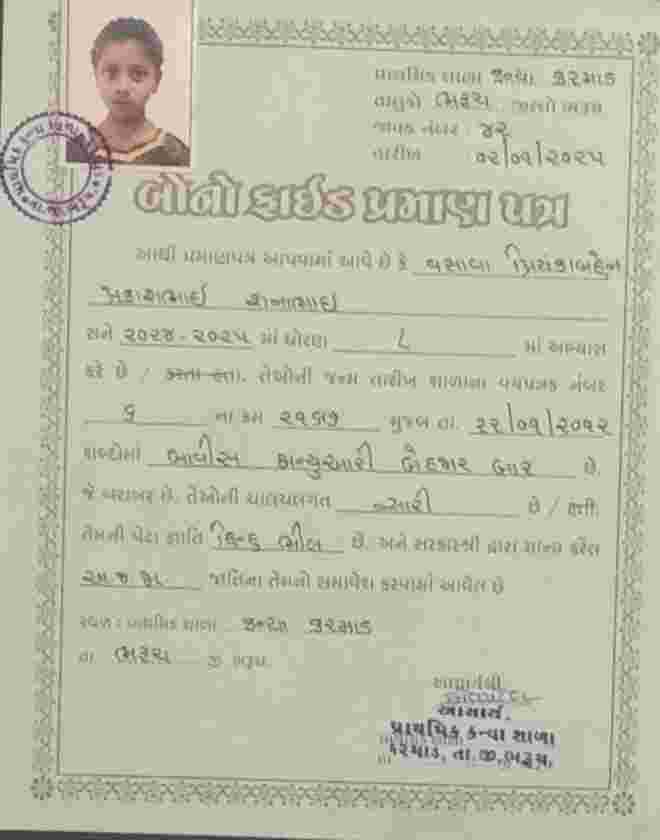 પ્રાથમિક શાળા કન્યા કરમાડ
તાલુકો ભરૂચ જીલ્લો ભરૂચ
જાવક નંબર : ૪૨
તારીખ ૦૨/૦૧/૨૦૨૫
બોનો ફાઈડ પ્રમાણ પત્ર
આથી પ્રમાણપત્ર આપવામાં આવે છે કે વસાવા પ્રિયંકાબહેન
પ્રકાશભાઈ શનાભાઈ
સને ૨૦૨૪-૨૦૨૫ માં ધોરણ ૮ માં અભ્યાસ
કરે છે / કરતા હતા. તેઓની જન્મ તારીખ શાળાના વયપત્રક નંબર
૬ ના ક્રમ ૨૧૬૭ મુજબ તા. ૨૨/૦૧/૨૦૧૨
શબ્દોમાં બાવીસ જાન્યુઆરી બેહજાર બાર છે.
જે બરાબર છે. તેઓની ચાલચલગત સારી છે / હતી.
તેમની પેટા જ્ઞાતિ હિન્દુ ભીલ છે. અને સરકારશ્રી દ્વારા માન્ય કરેલ
અ.જ.જા જાતિના તેમનો સમાવેશ કરવામાં આવેલ છે
સ્થળ : પ્રાથમિક શાળા કન્યા કરમાડ
તા. ભરૂચ જી. ભરૂચ.
આચાર્યશ્રી
આચાર્ય.
પ્રાથમિક કન્યા શાળા
કરમાડ, તા.જી.ભરૂચ.